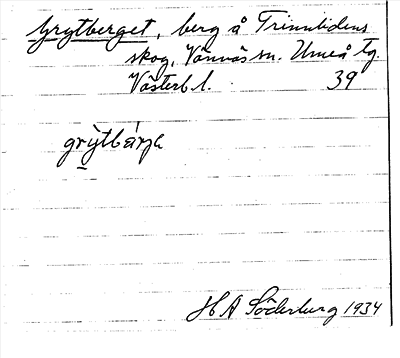 Grytberget, berg å Trinnlidens
skog, Vännäs sn. Umeå tg.
Västerb l. 39
grỳtbárja
H A Söderberg 1934